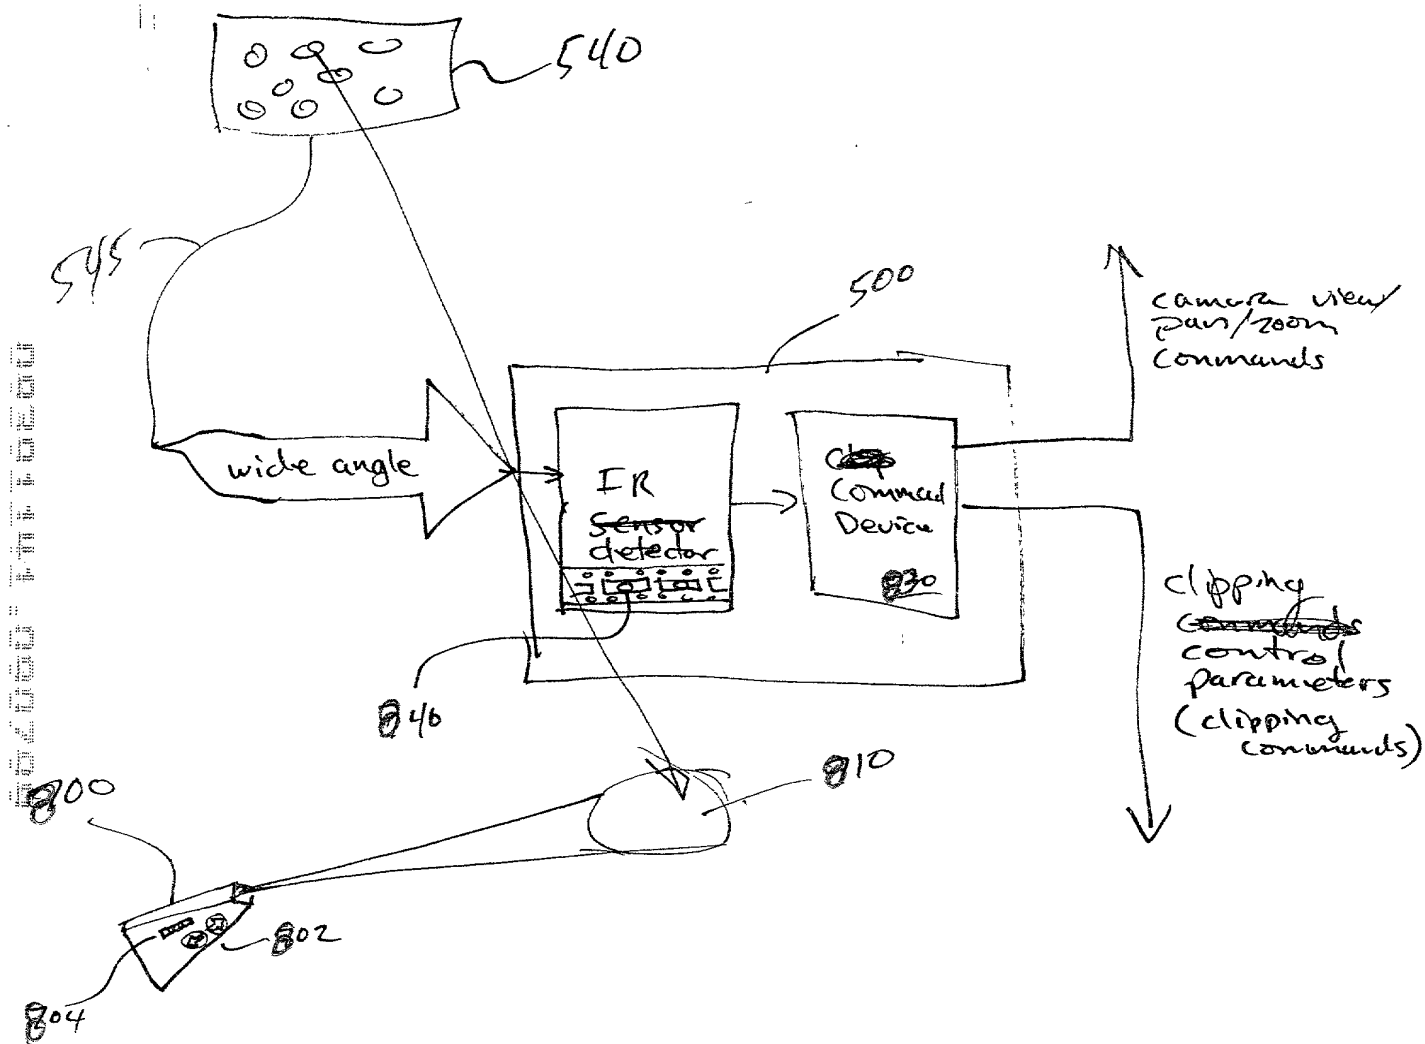 540
545
500
camara view/
pan/zoom
commands
wide angle
IR
sensor
detector
Commad
Device
830
clipping
commands
control
parameters
(clipping
commands)
840
810
800
802
804